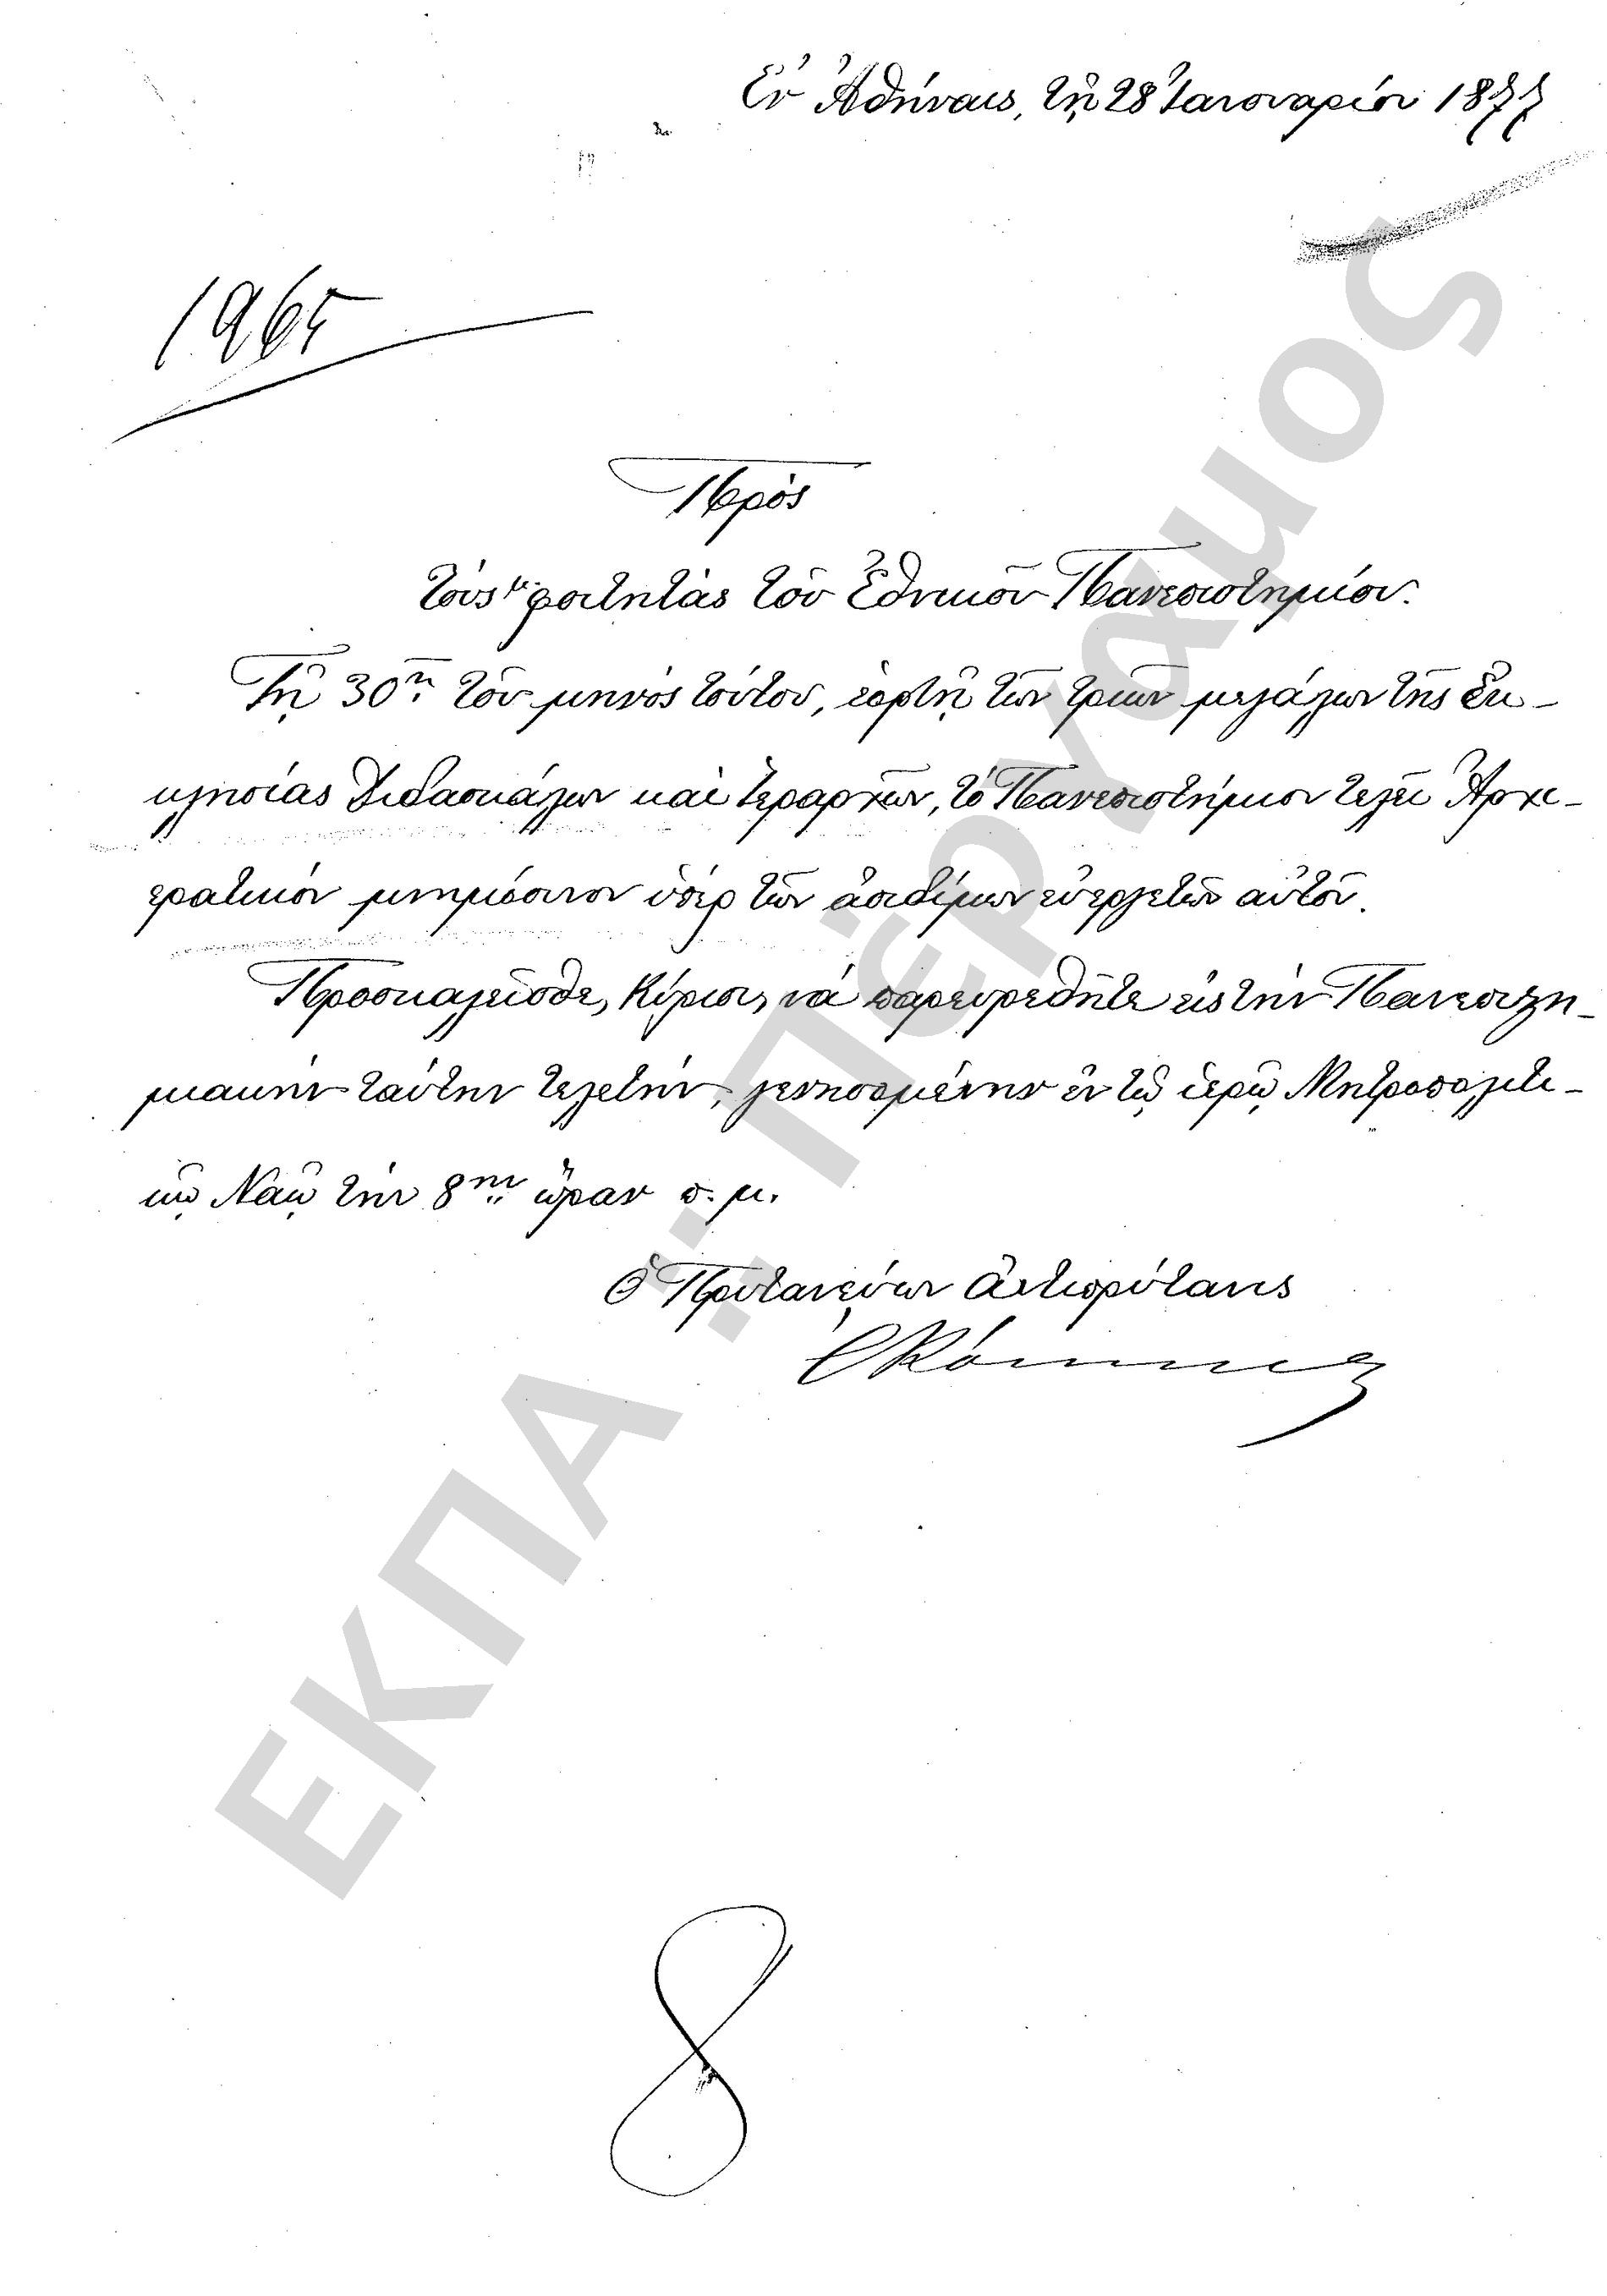 Ἐν Ἀθήναις, τῇ 28 Ἰανουαρίου 1877
1965
Πρὸς
τοὺς φοιτητὰς τοῦ Ἐθνικοῦ Πανεπιστημίου.
Τῇ 30ῃ τοῦ μηνὸς τούτου, ἑορτῇ τῶν τριῶν μεγάλων τῆς Ἐκ-
κλησίας Διδασκάλων καὶ Ἱεραρχῶν, τὸ Πανεπιστήμιον τελεῖ Ἀρχι-
ερατικὸν μνημόσυνον ὑπὲρ τῶν ἀοιδίμων εὐεργετῶν αὐτοῦ.
Προσκαλεῖσθε, Κύριοι, νὰ παρευρεθῆτε εἰς τὴν Πανεπιστη-
μιακὴν ταύτην τελετήν, γενησομένην ἐν τῷ ἱερῷ Μητροπολιτι-
κῷ Ναῷ τὴν 8ην ὥραν π. μ.
Ὁ Πρυτανεύων Ἀντιπρύτανις
8
ΕΚΠΑ :: Πέργαμος